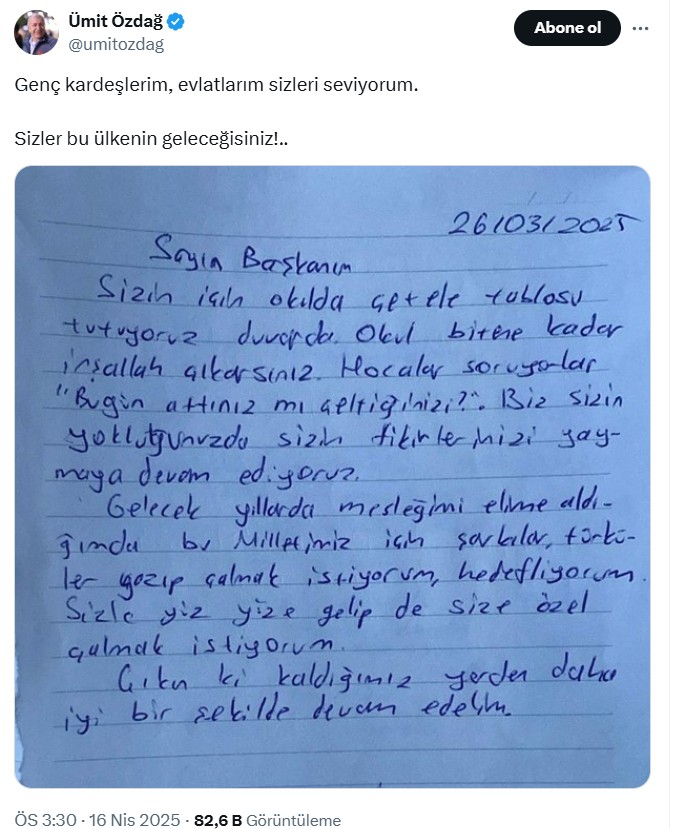 Ümit Özdağ
Abone ol
@umitozdag
Genç kardeşlerim, evlatlarım sizleri seviyorum.
Sizler bu ülkenin geleceğisiniz!..
26/03/2025
Sayın Başkanım
Sizin için okulda çetele tablosu
tutuyoruz duvarda. Okul bitene kadar
inşallah çıkarsınız. Hocalar soruyorlar
"Bugün attınız mı çeltiğinizi?". Biz sizin
yokluğunuzda sizin fikirlerinizi yay-
maya devam ediyoruz.
Gelecek yıllarda mesleğimi elime aldı-
ğımda bu Milletimiz için şarkılar, türkü-
ler yazıp çalmak istiyorum, hedefliyorum.
Sizle yüz yüze gelip de size özel
çalmak istiyorum.
Çıkın ki kaldığımız yerden daha
iyi bir şekilde devam edelim.
ÖS 3:30 · 16 Nis 2025 · 82,6 B Görüntüleme